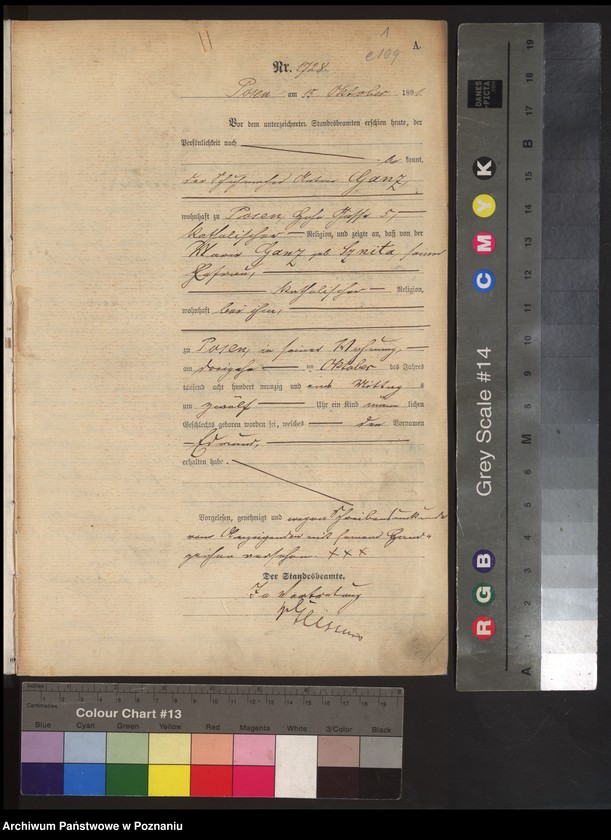 A.
Nr. 1728.
Posen am 15 Oktober 1891.
Vor dem unterzeichneten Standesbeamten erschien heute, der
Persönlichkeit nach
kannt,
der Schuhmacher Anton Ganz,
wohnhaft zu Posen, Hohe Gasse 5,
katholischer Religion, und zeigte an, daß von der
Maria Ganz geb. seiner
Ehefrau,
katholischer Religion,
wohnhaft bei ihm,
zu Posen, in seiner Wohnung,
am dreizehn ten Oktober des Jahres
tausend acht hundert neunzig und eins Mittags
um zwölf Uhr ein Kind männ lichen
Geschlechts geboren worden sei, welches den Vornamen
Edmund,
erhalten habe.
Vorgelesen, genehmigt und wegen Schreibensunkunde
vom Anzeigenden mit seinem Hand-
zeichen versehen. +++
Der Standesbeamte.
In Vertretung
Inches
Centimetres
Colour Chart #13
Blue Cyan Green Yellow Red Magenta White 3/Color Black
Grey Scale #14
DANES-PICTA
R G B
C M Y K
A 1 2 3 4 5 6 M 8 9 10 11 12 13 14 15 B 17 18 19
Archiwum Państwowe w Poznaniu